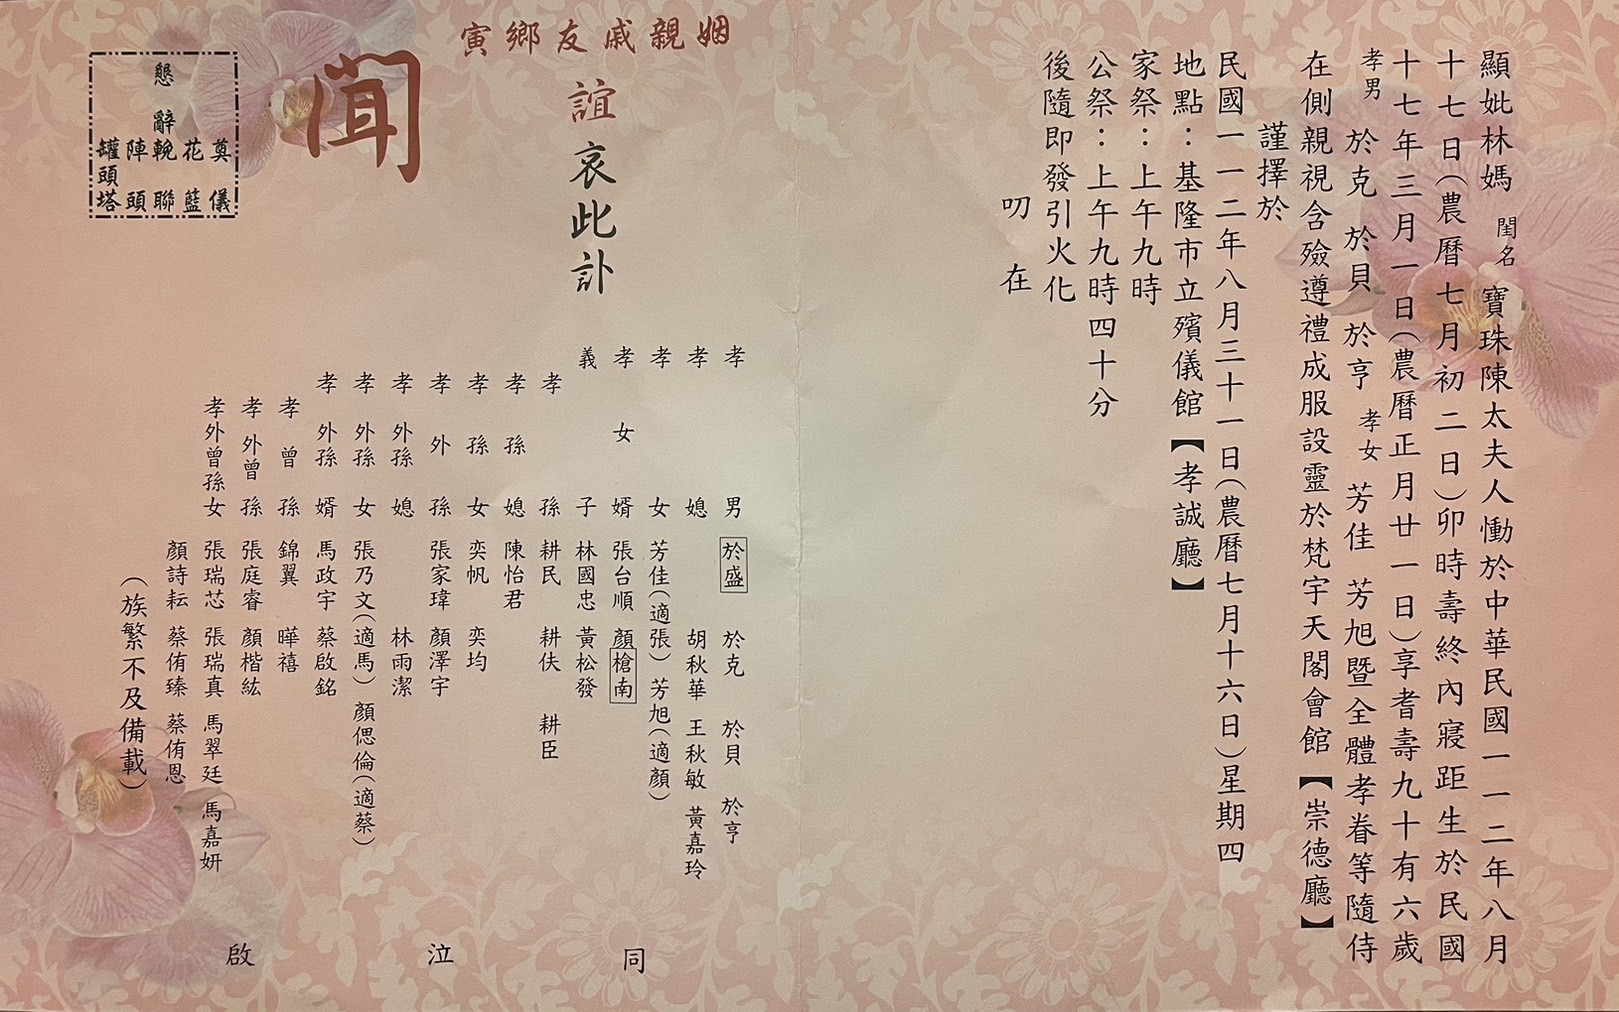 顯妣林媽閨名寶珠陳太夫人慟於中華民國一一二年八月
十七日(農曆七月初二日)卯時壽終內寢距生於民國
十七年三月一日(農曆正月廿一日)享耆壽九十有六歲
孝男 於克 於貝 於亨 孝女 芳佳 芳旭暨全體孝眷等隨侍
在側親視含殮遵禮成服設靈於梵宇天閣會館【崇德廳】
謹擇於
民國一一二年八月三十一日(農曆七月十六日)星期四
地點:基隆市立殯儀館【孝誠廳】
家祭:上午九時
公祭:上午九時四十分
後隨即發引火化
叨 在
姻親戚友鄉寅
誼哀此訃
聞
孝男 於盛 於克 於貝 於亨
孝媳 胡秋華 王秋敏 黃嘉玲
孝女 芳佳(適張) 芳旭(適顏)
孝女婿 張台順 顏槍南
義子 林國忠 黃松發
孝孫 耕民 耕伕 耕臣
孝孫媳 陳怡君
孝孫女 奕帆 奕均
孝外孫 張家瑋 顏澤宇
孝外孫媳 林雨潔
孝外孫女 張乃文(適馬) 顏偲倫(適蔡)
孝外孫婿 馬政宇 蔡啟銘
孝曾孫 錦翼 曄禧
孝外曾孫 張庭睿 顏楷紘
孝外曾孫女 張瑞芯 張瑞真 馬翠廷 馬嘉妍
顏詩耘 蔡侑臻 蔡侑恩
(族繁不及備載)
同 泣 啟
懇辭
奠儀
花籃
輓聯
陣頭
罐頭塔